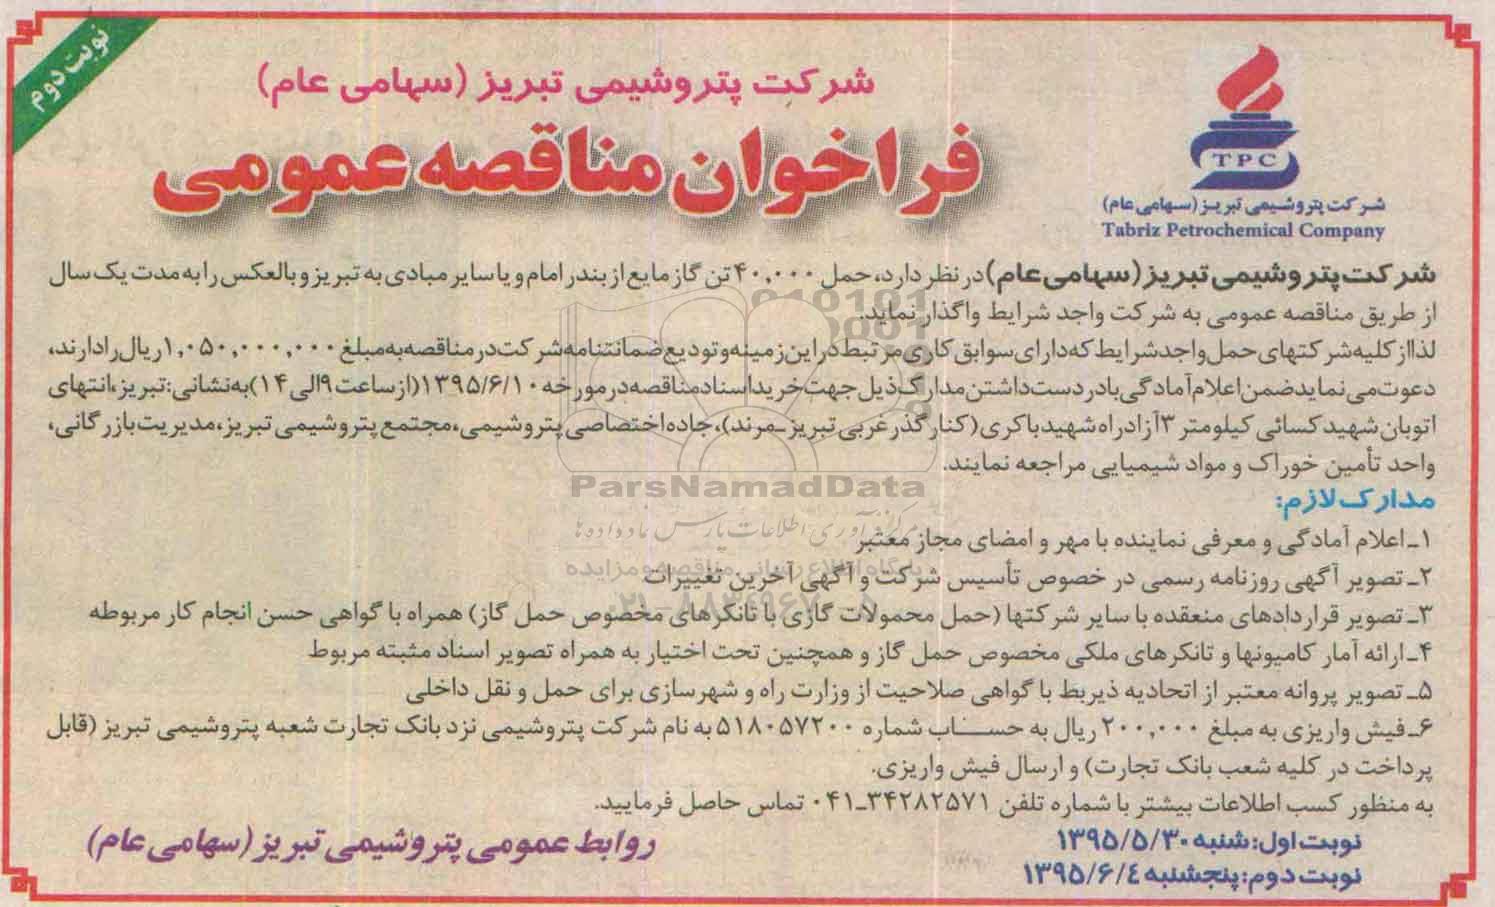 نوبت دوم
شرکت پتروشیمی تبریز (سهامی عام)
فراخوان مناقصه عمومی
TPC
شرکت پتروشیمی تبریز (سهامی عام)
Tabriz Petrochemical Company
شرکت پتروشیمی تبریز (سهامی عام) در نظر دارد، حمل ۴۰,۰۰۰ تن گاز مایع از بندر امام و یا سایر مبادی به تبریز و بالعکس را به مدت یک سال
از طریق مناقصه عمومی به شرکت واجد شرایط واگذار نماید.
لذا از کلیه شرکتهای حمل واجد شرایط که دارای سوابق کاری مرتبط در این زمینه و تودیع ضمانتنامه شرکت در مناقصه به مبلغ ۱,۰۵۰,۰۰۰,۰۰۰ ریال را دارند،
دعوت می نماید ضمن اعلام آمادگی با در دست داشتن مدارک ذیل جهت خرید اسناد مناقصه در مورخه ۱۳۹۵/۶/۱۰ (از ساعت ۹ الی ۱۴) به نشانی: تبریز، انتهای
اتوبان شهید کسائی کیلومتر ۳ آزادراه شهید باکری (کنار گذر غربی تبریز ـ مرند)، جاده اختصاصی پتروشیمی، مجتمع پتروشیمی تبریز، مدیریت بازرگانی،
واحد تأمین خوراک و مواد شیمیایی مراجعه نمایند.
مدارک لازم:
۱ـ اعلام آمادگی و معرفی نماینده با مهر و امضای مجاز معتبر
۲ـ تصویر آگهی روزنامه رسمی در خصوص تأسیس شرکت و آگهی آخرین تغییرات
۳ـ تصویر قراردادهای منعقده با سایر شرکتها (حمل محمولات گازی با تانکرهای مخصوص حمل گاز) همراه با گواهی حسن انجام کار مربوطه
۴ـ ارائه آمار کامیونها و تانکرهای ملکی مخصوص حمل گاز و همچنین تحت اختیار به همراه تصویر اسناد مثبته مربوط
۵ـ تصویر پروانه معتبر از اتحادیه ذیربط با گواهی صلاحیت از وزارت راه و شهرسازی برای حمل و نقل داخلی
۶ـ فیش واریزی به مبلغ ۲۰۰,۰۰۰ ریال به حساب شماره ۵۱۸۰۵۷۲۰۰ به نام شرکت پتروشیمی نزد بانک تجارت شعبه پتروشیمی تبریز (قابل
پرداخت در کلیه شعب بانک تجارت) و ارسال فیش واریزی.
به منظور کسب اطلاعات بیشتر با شماره تلفن ۳۴۲۸۲۵۷۱ـ۰۴۱ تماس حاصل فرمایید.
نوبت اول: شنبه ۱۳۹۵/۵/۳۰
نوبت دوم: پنجشنبه ۱۳۹۵/۶/٤
روابط عمومی پتروشیمی تبریز (سهامی عام)
ParsNamadData
مرکز فرآوری اطلاعات پارس نماد داده ها
پایگاه اطلاع رسانی مناقصه و مزایده